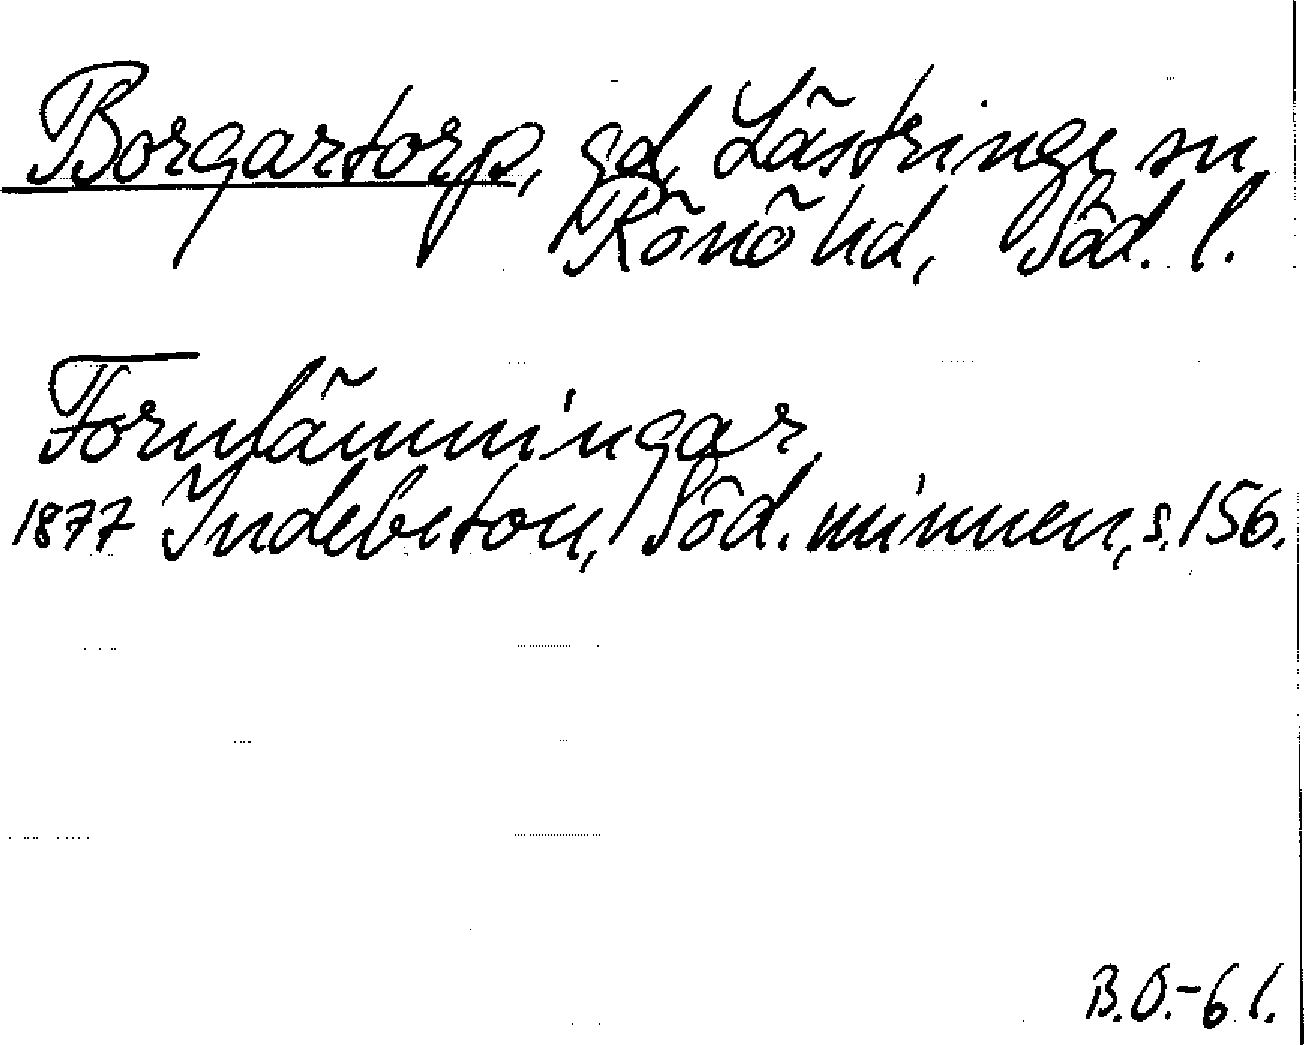 Borgartorp, gd, Lästringe sn
Rönö hd, Söd. l.
Fornlämningar
1877 Indebetou, Söd. minnen, s. 156.
B.O.-61.